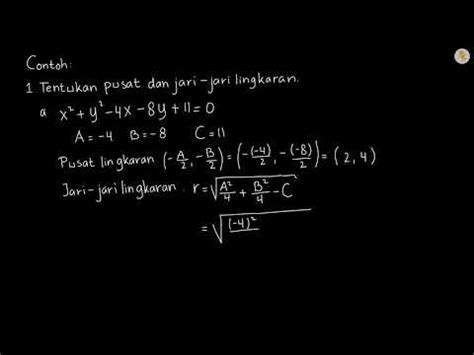 Contoh:
1. Tentukan pusat dan jari-jari lingkaran.
a x² + y² - 4x - 8y + 11 = 0
A = -4 B = -8 C = 11
Pusat lingkaran (-A/2, -B/2) = (-(-4)/2, -(-8)/2) = (2, 4)
Jari-jari lingkaran. r = √(A²/4 + B²/4 - C)
= √((-4)²/